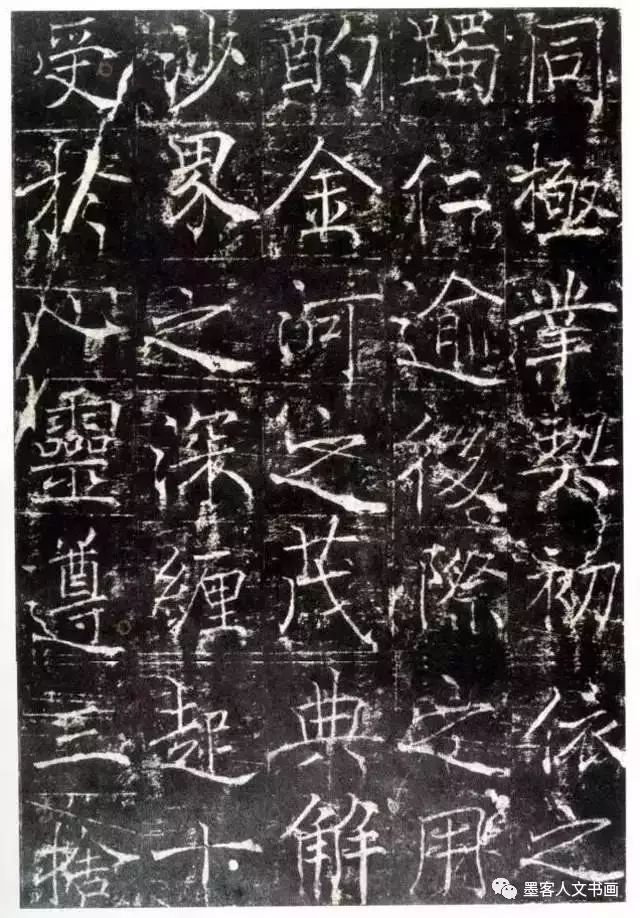 同極業契初依之
躅仁逾後際之用
酌金河之茂典解
沙界之深纏起十
受於八靈遵三捨
墨客人文书画